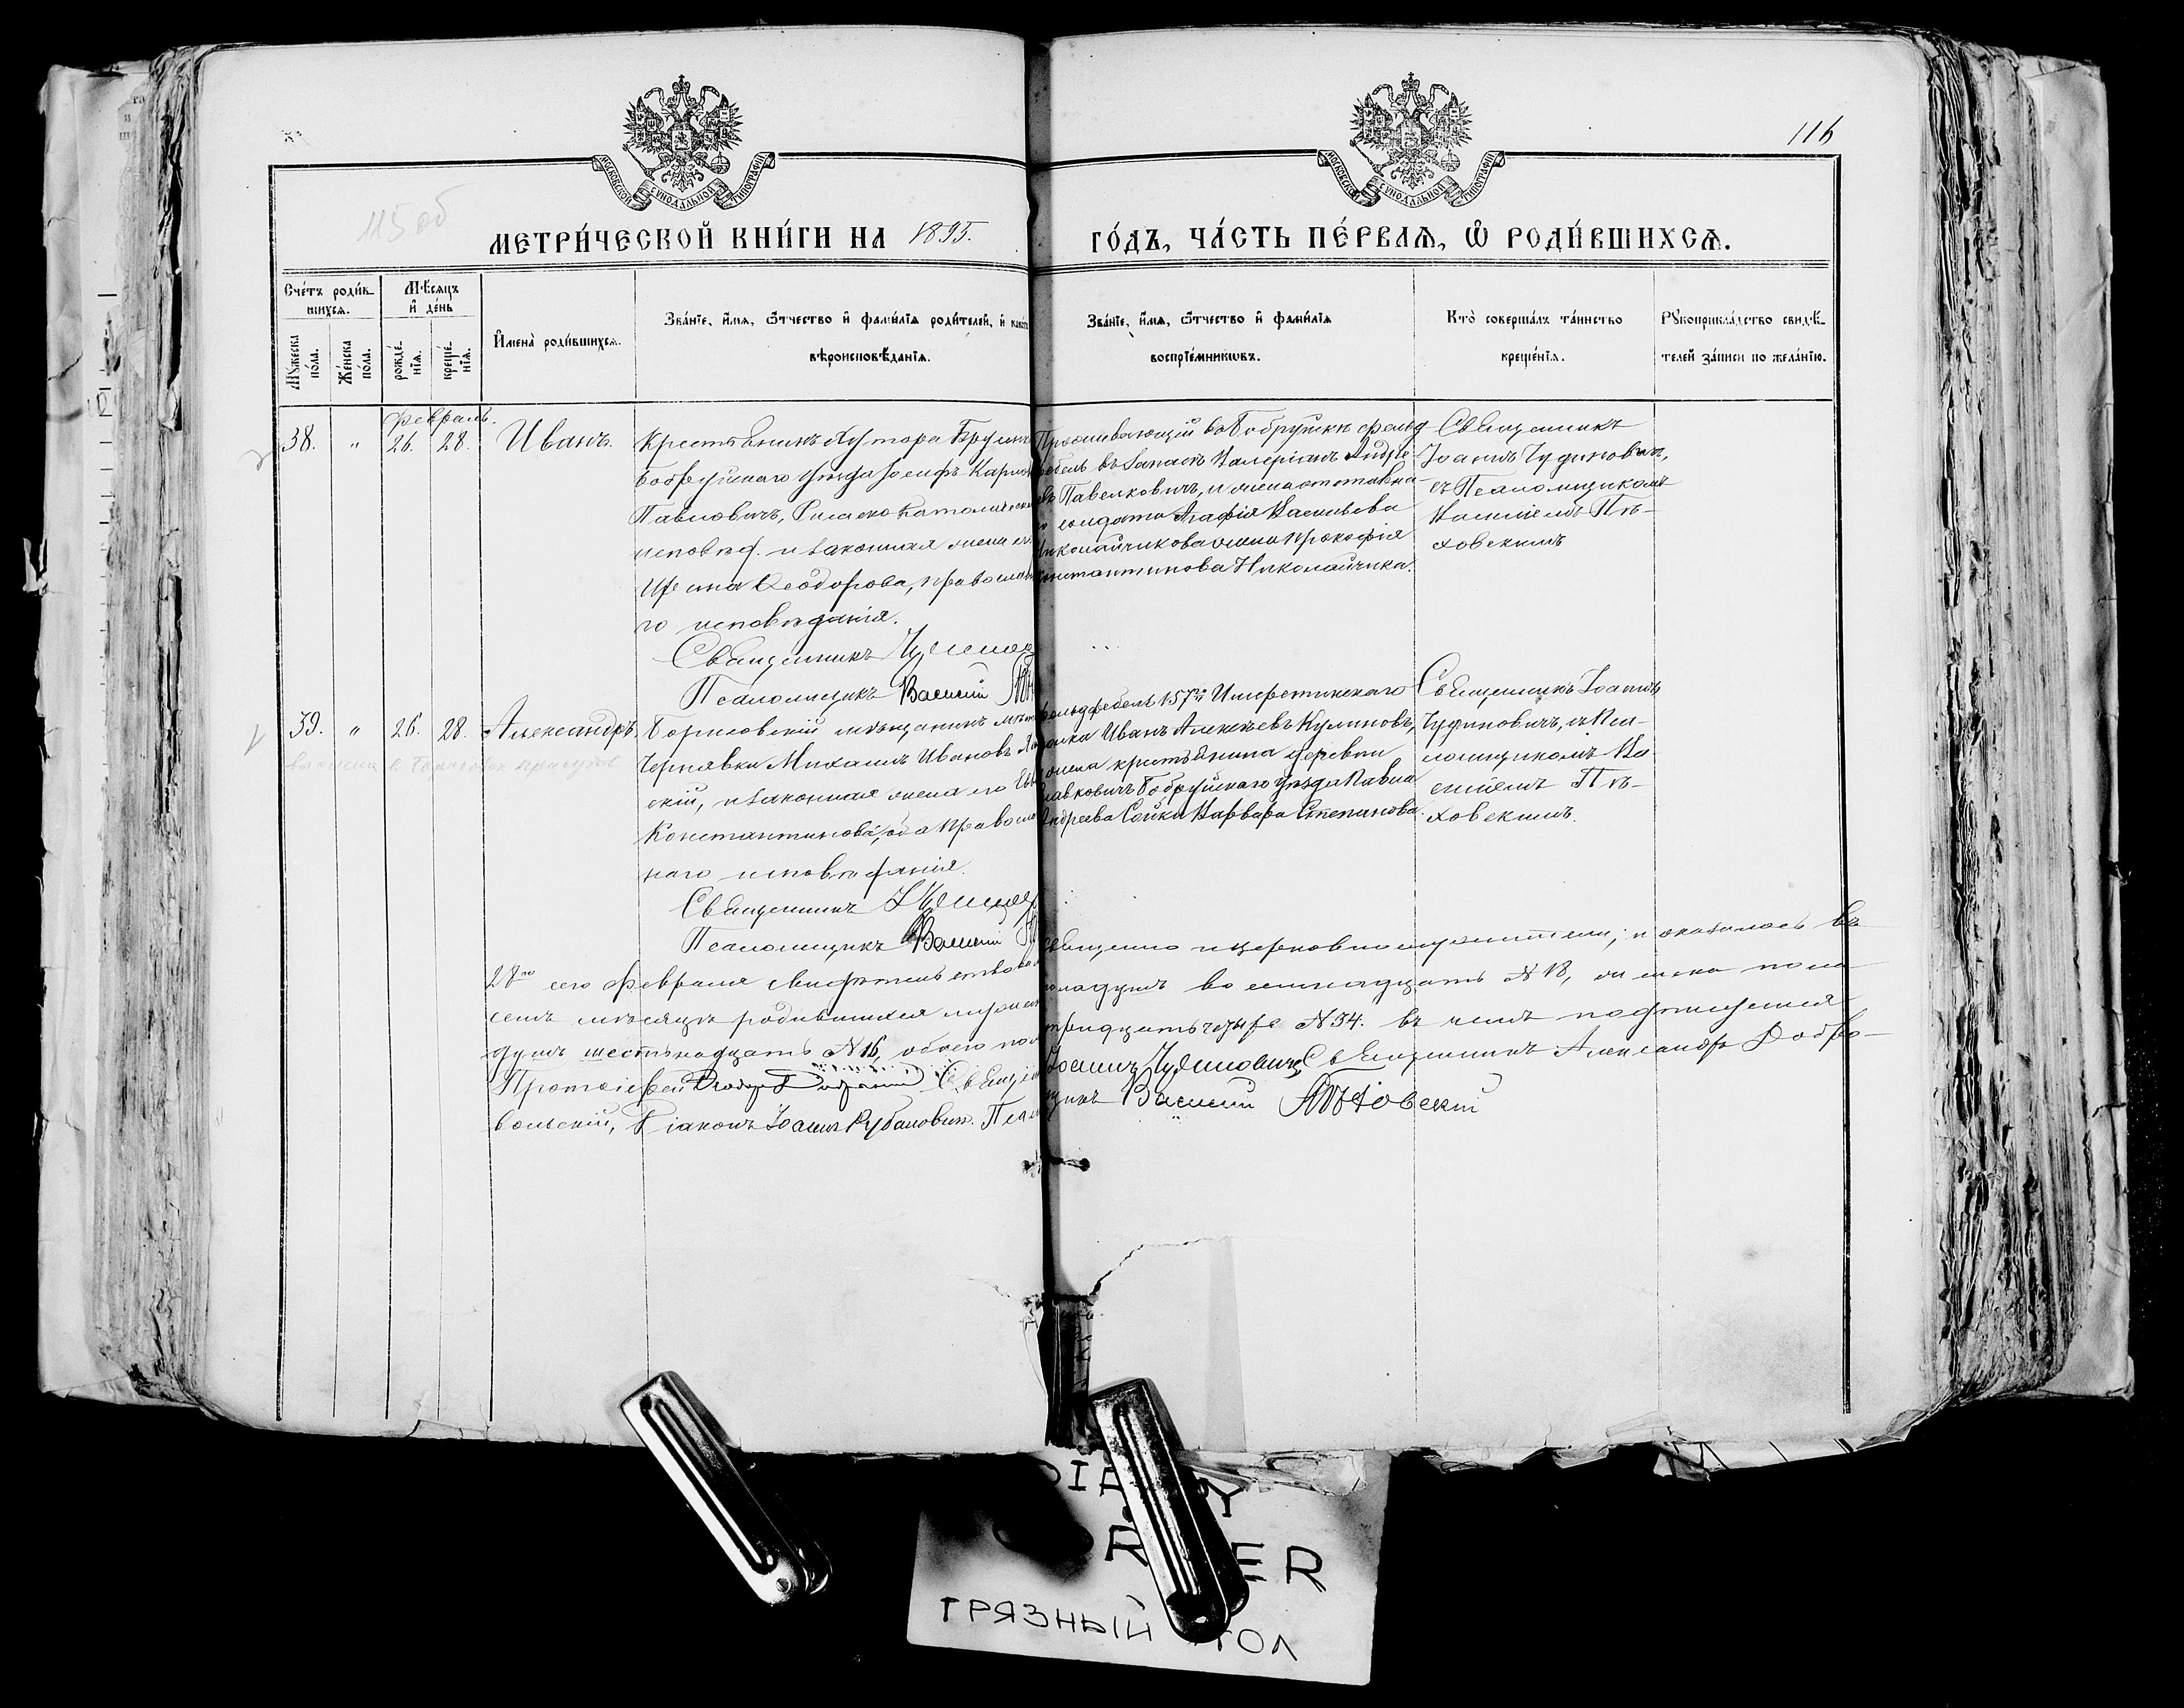 МОСКОВСКОЙ СУНОДАЛЬНОЙ ТИПОГРАФІИ
МОСКОВСКОЙ СУНОДАЛЬНОЙ ТИПОГРАФІИ
116
115 об
МЕТРИ́ЧЕСКОЙ КНИ́ГИ НА 1895.
ГО́ДЪ, ЧА́СТЬ ПЕ́РВАѦ, Ѡ РОДИ́ВШИХСѦ.
Сче́тъ роди́в-
шихсѧ.
Мꙋ́жеска по́ла.
Же́нска по́ла.
Мѣ́сѧцъ
и҆ де́нь
рожде́-
нїѧ.
креще́-
нїѧ.
И҆мена̀ роди́вшихсѧ.
Зва́нїе, и҆́мѧ, ѻ҆́тчество и҆ фами́лїѧ роди́телей, и҆
вѣроисповѣ́данїѧ.
Зва́нїе, и҆́мѧ, ѻ҆́тчество и҆ фами́лїѧ
воспрїе́мникѡвъ.
Кто̀ соверша́лъ та́инство
креще́нїѧ.
Рꙋкоприкла́дство свидѣ́-
телей за́писи по жела́нїю.
Февраль.
38. " 26. 28. Иванъ.
Крестьянинъ хутора
Бобруйскаго уѣзда Іосифъ
Павловичъ, Римско католическ
исповѣд. и законная жена его
Ирина Ѳеодорова, православн
го исповѣданія.
Священникъ
Псаломщикъ Василій
Проживающій въ Бобруйскѣ фельд
фебель въ запасѣ Валеріанъ Андре-
евъ Павелковичъ, и жена отставна-
го солдата Агафія Васильева
Николайчикова жена Прокофія
Константинова Николайчика.
Священникъ
Іоаннъ Чудиновичъ,
съ Псаломщикомъ
Василіемъ Пѣ-
ховскимъ
39. " 26. 28. Александръ.
Борисовскій мѣщанинъ мѣст
Чернявки Михаилъ Ивановъ
скій, и законная жена его
Константинова, оба православ
наго исповѣданія.
Священникъ
Псаломщикъ Василій
Фельдфебель 157го Имеретинскаго
полка Иванъ Алексѣевъ Куликовъ,
жена крестьянина деревни
Славковичъ Бобруйскаго уѣзда Павла
Андреева Сойки Варвара Степанова.
Священникъ Іоаннъ
Чудиновичъ, съ Пса-
ломщикомъ Ва-
силіемъ Пѣ-
ховскимъ.
28го сего Февраля свидѣтельствовали священно и церковнослужители; и оказалось въ
семъ мѣсяцѣ родившихся мужеска поладушъ восемнадцать № 18, женска пола
душъ шестьнадцать № 16, обоего пола тридцать четыре № 34. въ чемъ подпишемся
Протоіерей Священникъ Іоаннъ Чудиновичъ Священникъ Александръ Добро-
вольскій, Діаконъ Іоаннъ Рубановичъ. Псаломщикъ Василій Пѣховскій
ГРЯЗНЫЙ